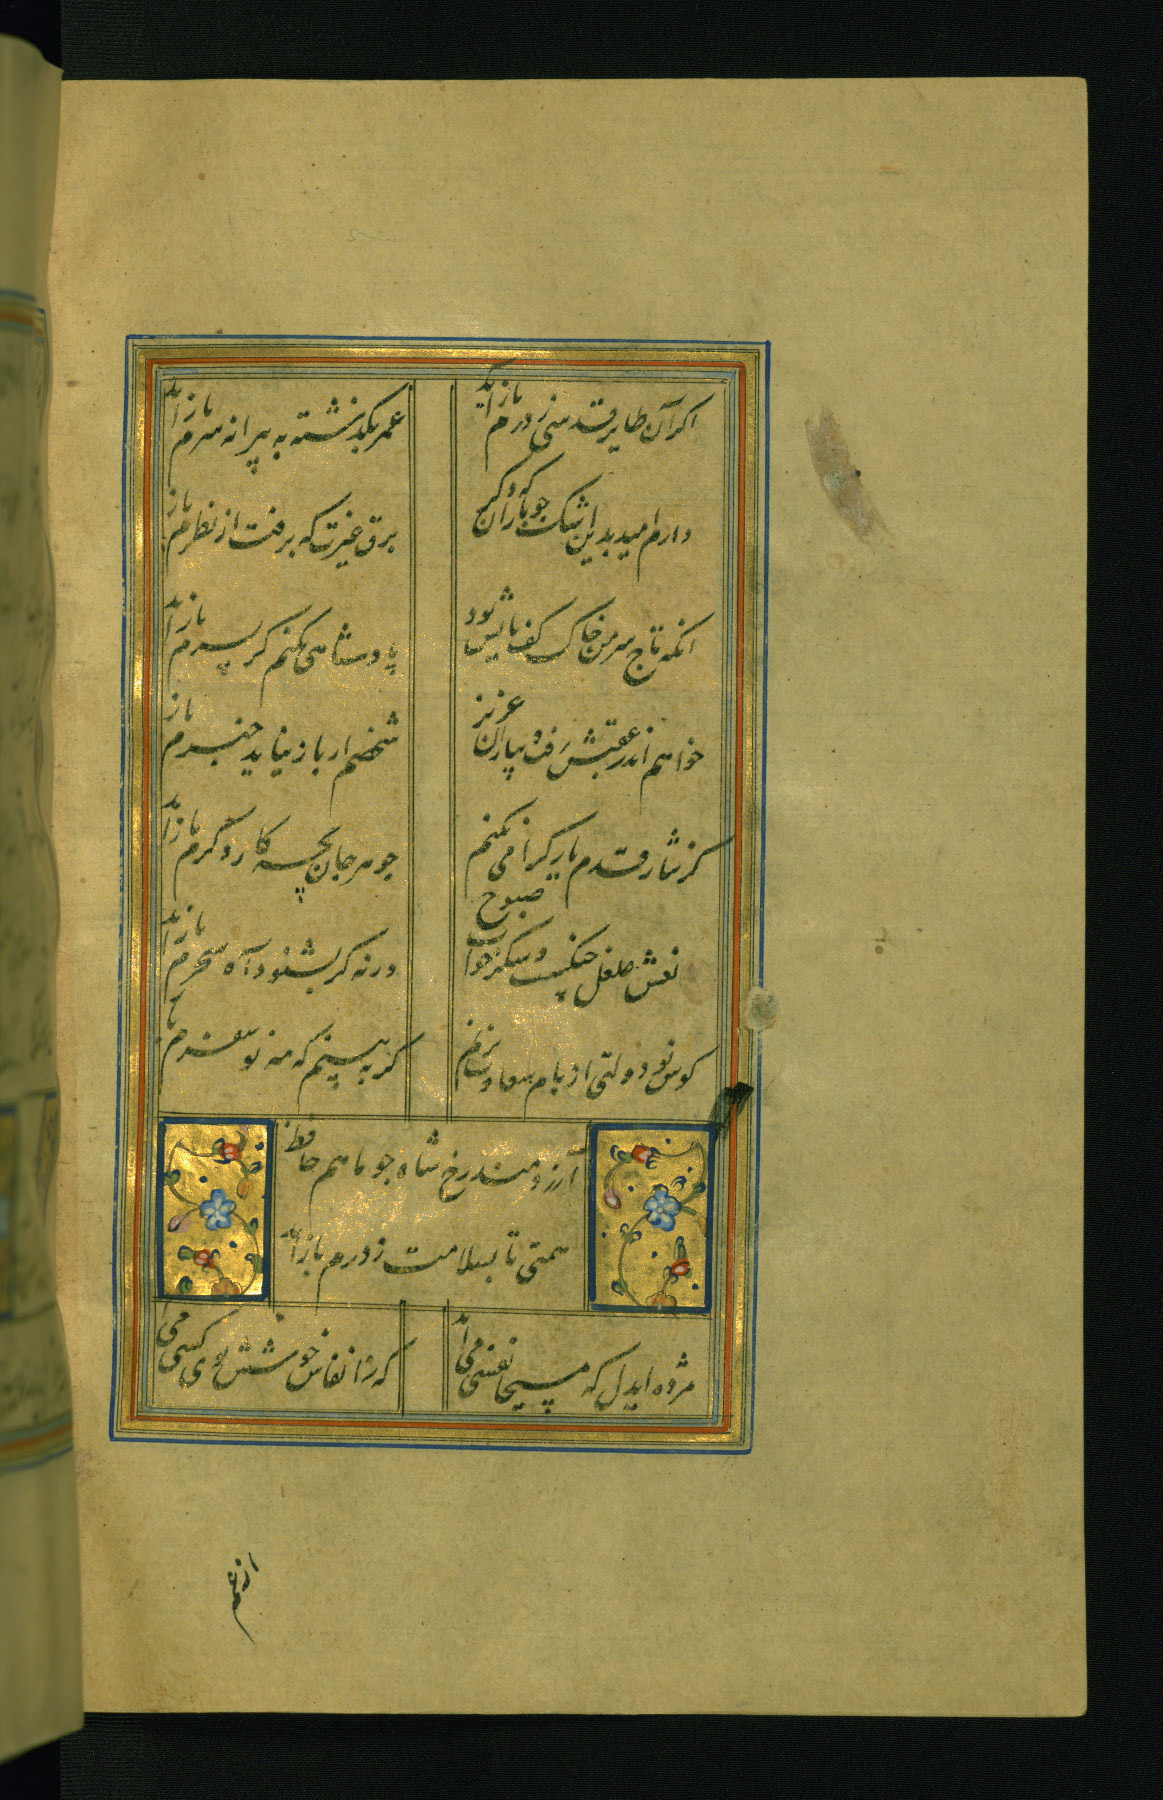 اکر آن طایر قدسی ز درم باز آید
عمر بکذشته به پیرانه سرم باز آید
دارم امید بدین اشک جو باران که دکر
برق غیرت که برفت از نظرم باز
انکه تاج سر من خاک کف پایش بود
پادشاهی بکنم کر بسرم باز آید
خواهم اندر عقبش رفت و بیاران عزیز
شخصم ار باز نیاید خبرم باز
کر نثار قدم یار کرامی نکنم
جوهر جان بچه کار دکرم باز آید
غلغل چنکست و شکر خواب صبوح
ورنه کر بشنود آه سحرم باز آید
کوس نو دولتی از بام سعادت بزنم
کر به بینم که مه نو سفرم با
آرزومند رخ شاه جو ماهم حافظ
همتی تا بسلامت ز درم باز آید
مژده ایدل که مسیحا نفسی می آید
که ز انفاس خوشش بوی کسی می
از غم